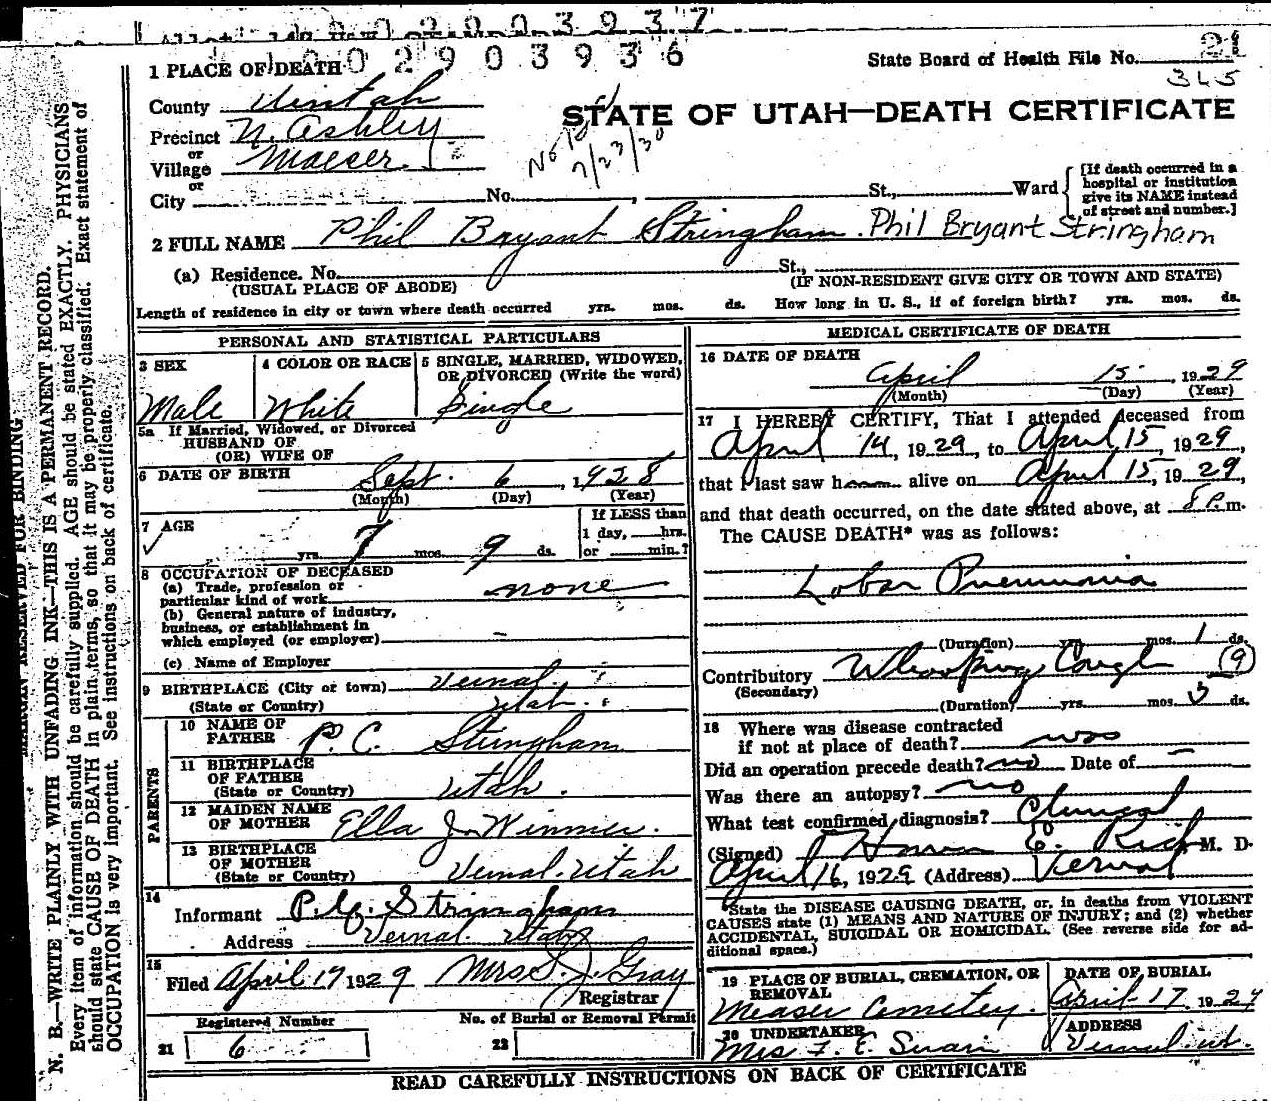 0 2 9 0 3 9 3 7
1 0 0 2 9 0 3 9 3 6
State Board of Health File No. 21
345
1 PLACE OF DEATH
County Uintah
STATE OF UTAH—DEATH CERTIFICATE
Precinct N. Ashley
or
Village Maeser
7/23/30
or
City No. , St., Ward
[If death occurred in a hospital or institution give its NAME instead of street and number.]
2 FULL NAME Phil Bryant Stringham. Phil Bryant Stringham
(a) Residence. No. St.,
(USUAL PLACE OF ABODE) (IF NON-RESIDENT GIVE CITY OR TOWN AND STATE)
Length of residence in city or town where death occurred yrs. mos. ds. How long in U. S., if of foreign birth? yrs. mos. ds.
PERSONAL AND STATISTICAL PARTICULARS
3 SEX
Male
4 COLOR OR RACE
White
5 SINGLE, MARRIED, WIDOWED,
OR DIVORCED (Write the word)
Single
5a If Married, Widowed, or Divorced
HUSBAND OF
(OR) WIFE OF
6 DATE OF BIRTH Sept. 6, 1928
(Month) (Day) (Year)
7 AGE
yrs. 7 mos. 9 ds.
If LESS than
1 day, hrs.
or min.?
8 OCCUPATION OF DECEASED
(a) Trade, profession or
particular kind of work none
(b) General nature of industry,
business, or establishment in
which employed (or employer) –
(c) Name of Employer
9 BIRTHPLACE (City or town) Vernal
(State or Country) Utah.
PARENTS
10 NAME OF
FATHER P. C. Stringham
11 BIRTHPLACE
OF FATHER
(State or Country) Utah.
12 MAIDEN NAME
OF MOTHER Ella J. Winmer.
13 BIRTHPLACE
OF MOTHER
(State or Country) Vernal. Utah
14
Informant P. C. Stringham
Address Vernal. Utah
15
Filed April 17 1929 Mrs S. J. Gray
Registrar
Registered Number
21 6
No. of Burial or Removal Permit
22
MEDICAL CERTIFICATE OF DEATH
16 DATE OF DEATH
April 15, 1929
(Month) (Day) (Year)
17 I HEREBY CERTIFY, That I attended deceased from
April 14, 1929, to April 15, 1929,
that I last saw h alive on April 15, 1929,
and that death occurred, on the date stated above, at 8 P. m.
The CAUSE DEATH* was as follows:
Lobar Pneumonia
(Duration) yrs. mos. 1 ds.
Contributory Whooping Cough (9)
(Secondary)
(Duration) yrs. mos. ds.
18 Where was disease contracted
if not at place of death? was
Did an operation precede death? no Date of –
Was there an autopsy? no
What test confirmed diagnosis? Clinical
(Signed) E. Rich, M. D.
April 16, 1929 (Address) Vernal
*State the DISEASE CAUSING DEATH, or, in deaths from VIOLENT
CAUSES state (1) MEANS AND NATURE OF INJURY; and (2) whether
ACCIDENTAL, SUICIDAL OR HOMICIDAL. (See reverse side for ad-
ditional space.)
19 PLACE OF BURIAL, CREMATION, OR
REMOVAL
Measer Cemetery.
DATE OF BURIAL
April 17 1929
20 UNDERTAKER
Mrs F. E. Swain
ADDRESS
Vernal ut.
READ CAREFULLY INSTRUCTIONS ON BACK OF CERTIFICATE
MARGIN RESERVED FOR BINDING
N. B.—WRITE PLAINLY WITH UNFADING INK—THIS IS A PERMANENT RECORD.
Every item of information should be carefully supplied. AGE should be stated EXACTLY. PHYSICIANS
should state CAUSE OF DEATH in plain terms, so that it may be properly classified. Exact statement of
OCCUPATION is very important. See instructions on back of certificate.